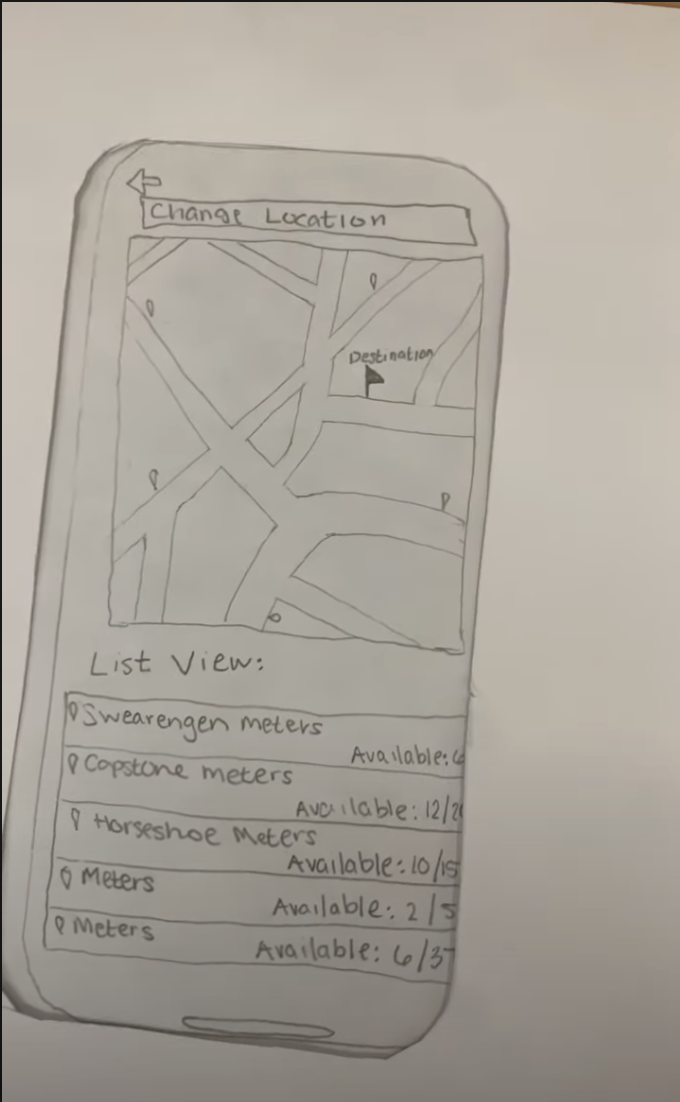 Change Location
Destination
List View:
Swearengen meters
Available: 6
Capstone meters
Available: 12/2
Horseshoe Meters
Available: 10/15
Meters
Available: 2/5
Meters
Available: 6/37